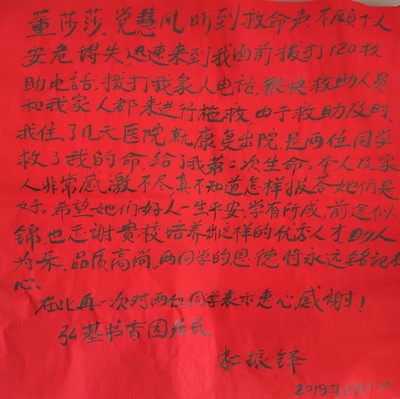 董莎莎、党慧凤听到救命声不顾个人
安危得失迅速来到我面前拨打120救
助电话，拨打我家人电话，很快救助人员
和我家人都来进行施救由于救助及时
我住了几天医院就康复出院，是两位同学
救了我的命，给了我第二次生命。个人及家
人非常感激不尽真不知道怎样报答她们是
好。希望她们好人一生平安，学有所成，前途似
锦，也感谢贵校培养出这样的优秀人才助人
为乐，品质高尚。两同学的恩德付永远铭记在
心。
在此再一次对两位同学表示衷心感谢！
弘基书香园居民
杜振铎
2019年